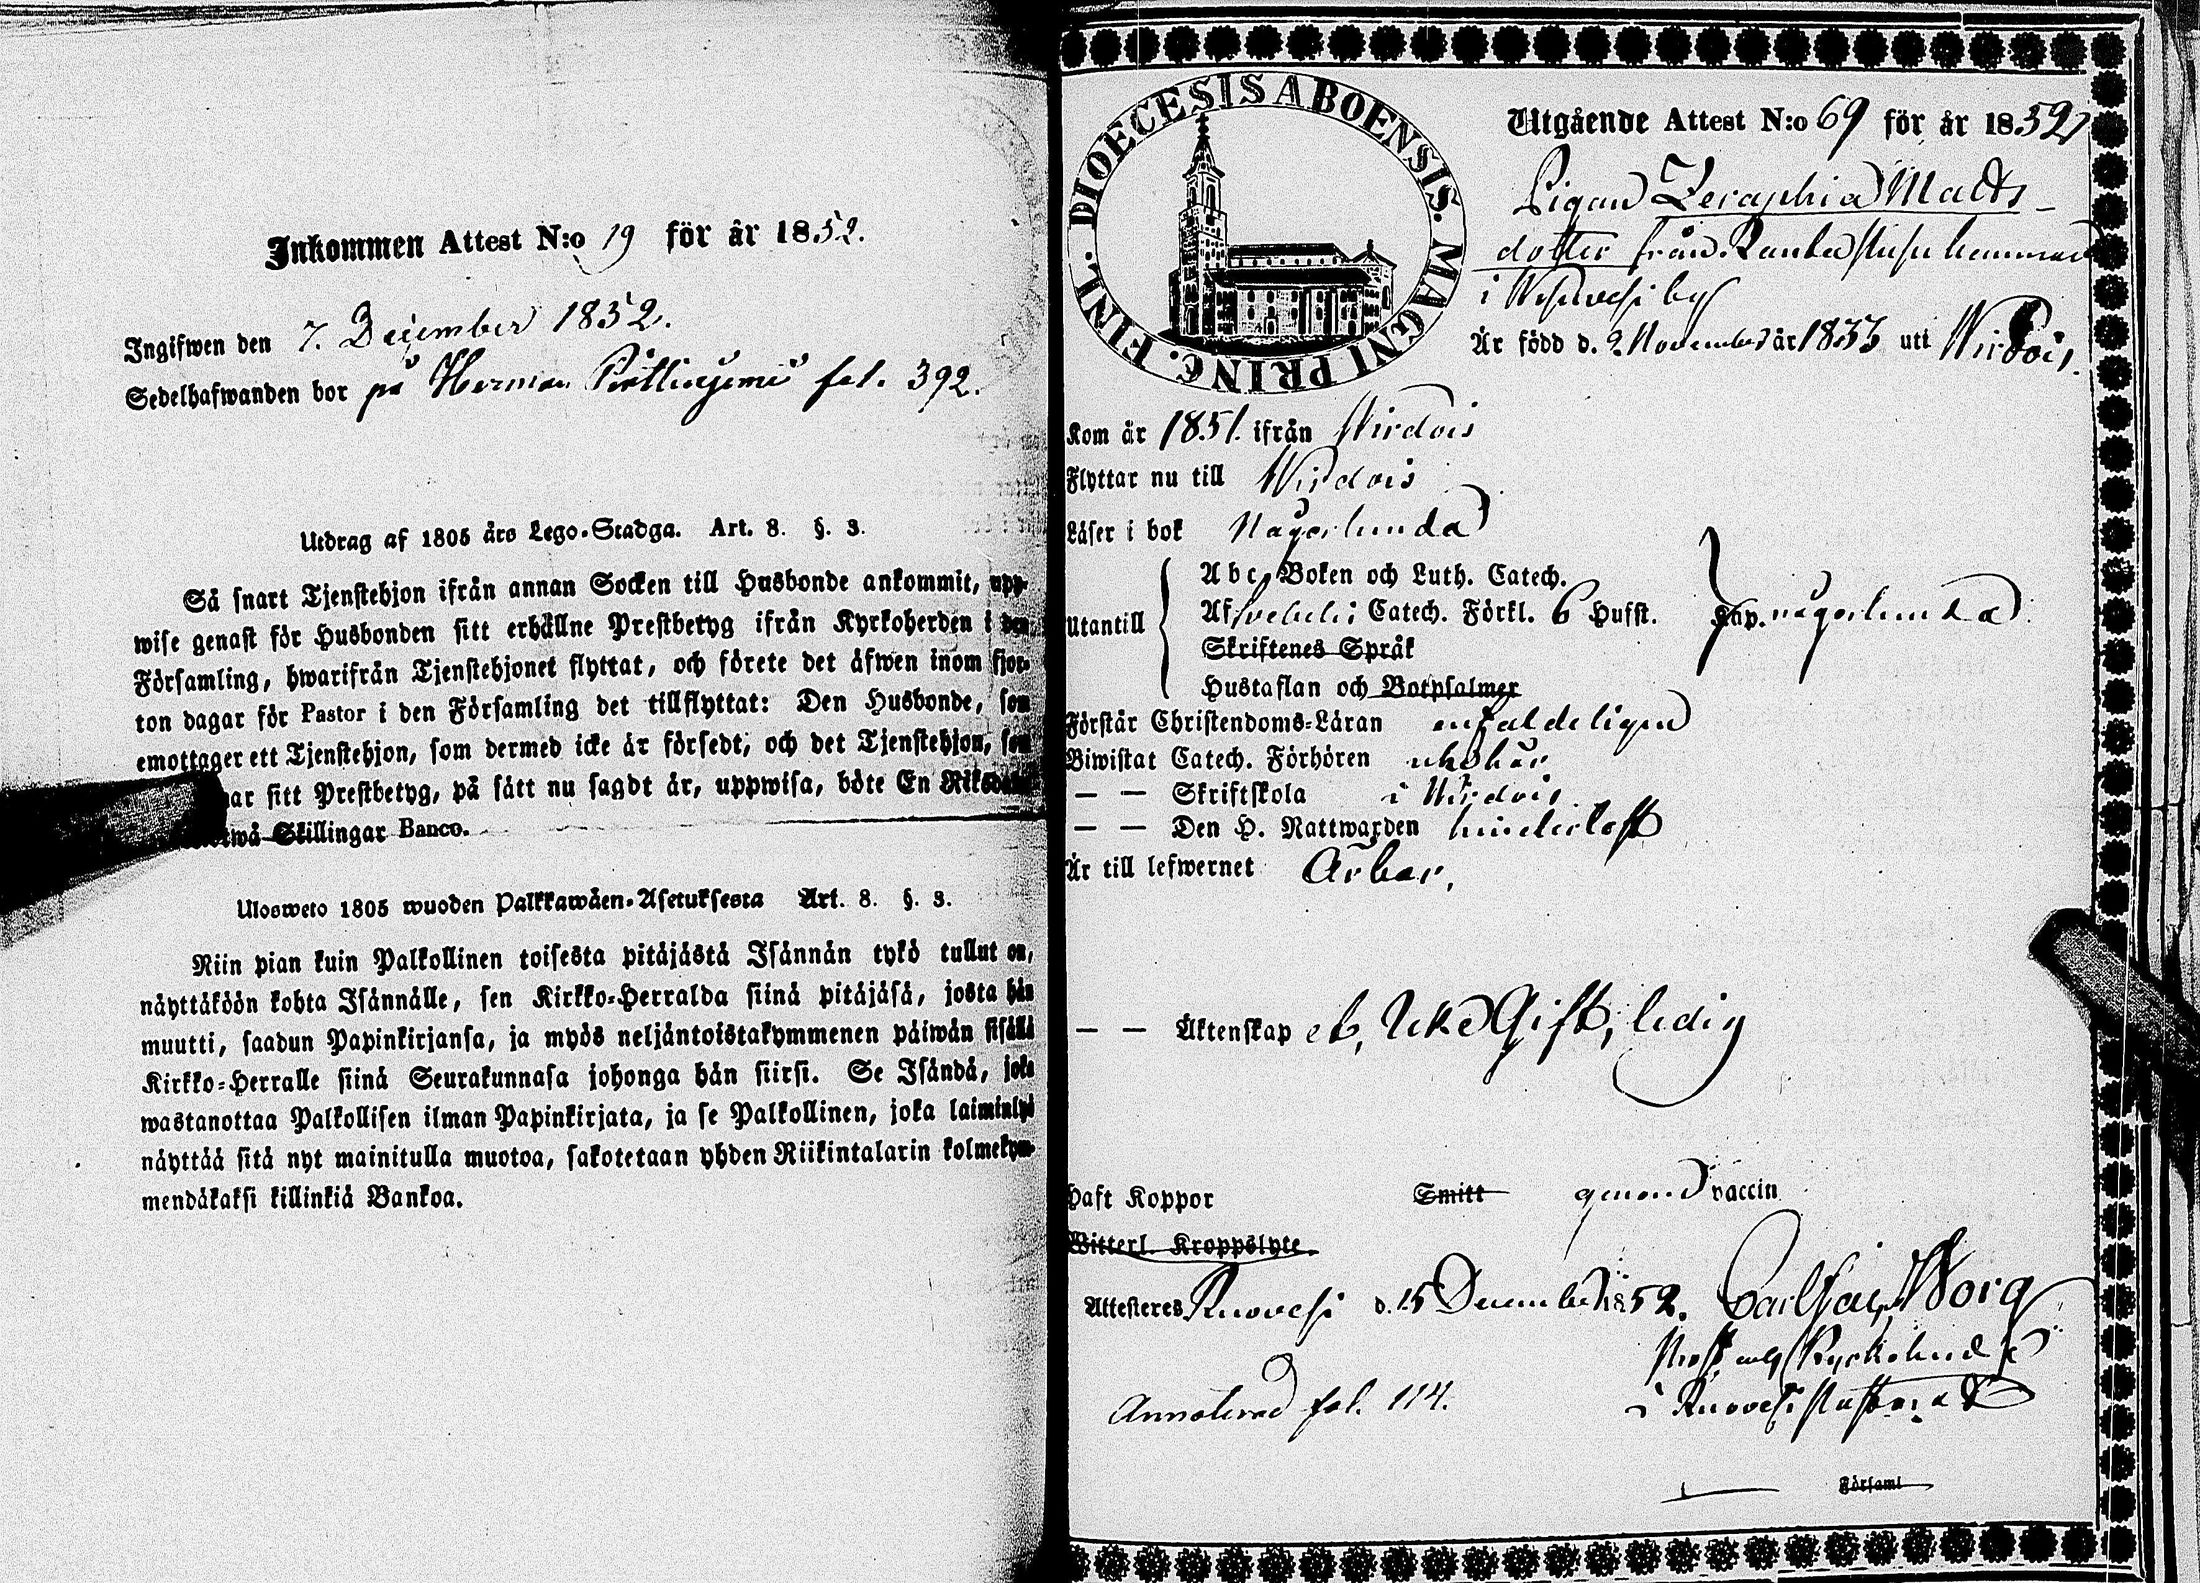 Inkommen Attest N:o 19 för år 1852.
Ingifwen den 7. December 1852.
Sedelhafwanden bor på Herman fol. 392.
Utdrag af 1805 års Lego-Stadga. Art. 8. §. 3.
Så snart Tjenstehjon ifrån annan Socken till Husbonde ankommit, upp-
wise genast för Husbonden sitt erhållne Prestbetyg ifrån Kyrkoherden i den
Församling, hwarifrån Tjenstehjonet flyttat, och förete det äfwen inom fjor-
ton dagar för Pastor i den Församling det tillflyttat: Den Husbonde, som
emottager ett Tjenstehjon, som dermed icke är försedt, och det Tjenstehjon, som
sitt Prestbetyg, på sätt nu sagdt är, uppwisa, böte En Riksdaler
Skillingar Banco.
Ulosweto 1805 wuoden Palkkawäen-Asetuksesta Art. 8. §. 3.
Niin pian kuin Palkollinen toisesta pitäjästä Isännän tykö tullut on,
näyttäköön kohta Isännälle, sen Kirkko-Herralda siinä pitäjäsä, josta hän
muutti, saadun Papinkirjansa, ja myös neljäntoistakymmenen päiwän sisällä
Kirkko-Herralle siinä Seurakunnasa johonga hän siirsi. Se Isändä, joka
wastanottaa Palkollisen ilman Papinkirjata, ja se Palkollinen, joka laiminlyö
näyttää sitä nyt mainitulla muotoa, sakotetaan yhden Riikintalarin kolmekym-
mendäkaksi killinkiä Bankoa.
DIOECESIS ABOENSIS. MAGNI PRINC. FINL.
Utgående Attest N:o 69 för år 1852,
Pigan Zeraphia Matts-
dotter från hemman
i by
Är född d. 9. November år 1833 uti Wirdois.
Kom år 1851. ifrån Wirdois
Flyttar nu till Wirdois
Läser i bok Någorlunda
Abc-Boken och Luth. Catech.
Utantill Af Catech. Förkl. 6 Hufst. Kap. någorlunda
Skriftenes Språk
Hustaflan och Botpsalmer
Förstår Christendoms-Läran enfaldeligen
Biwistat Catech. Förhören
— — Skriftskola i Wirdois
— — Den H. Nattwarden
Är till lefwernet Ärbar,
— — Äktenskap et, Icke Gift, ledig
Haft Koppor Smitt genom vaccin
Witterl. Kroppslyte
Attesteres Ruovesi d. 15 December 1852. Carl Borg
Prost och Kyrkoherde
i Ruovesi
Annoterad fol. 114.
Församl